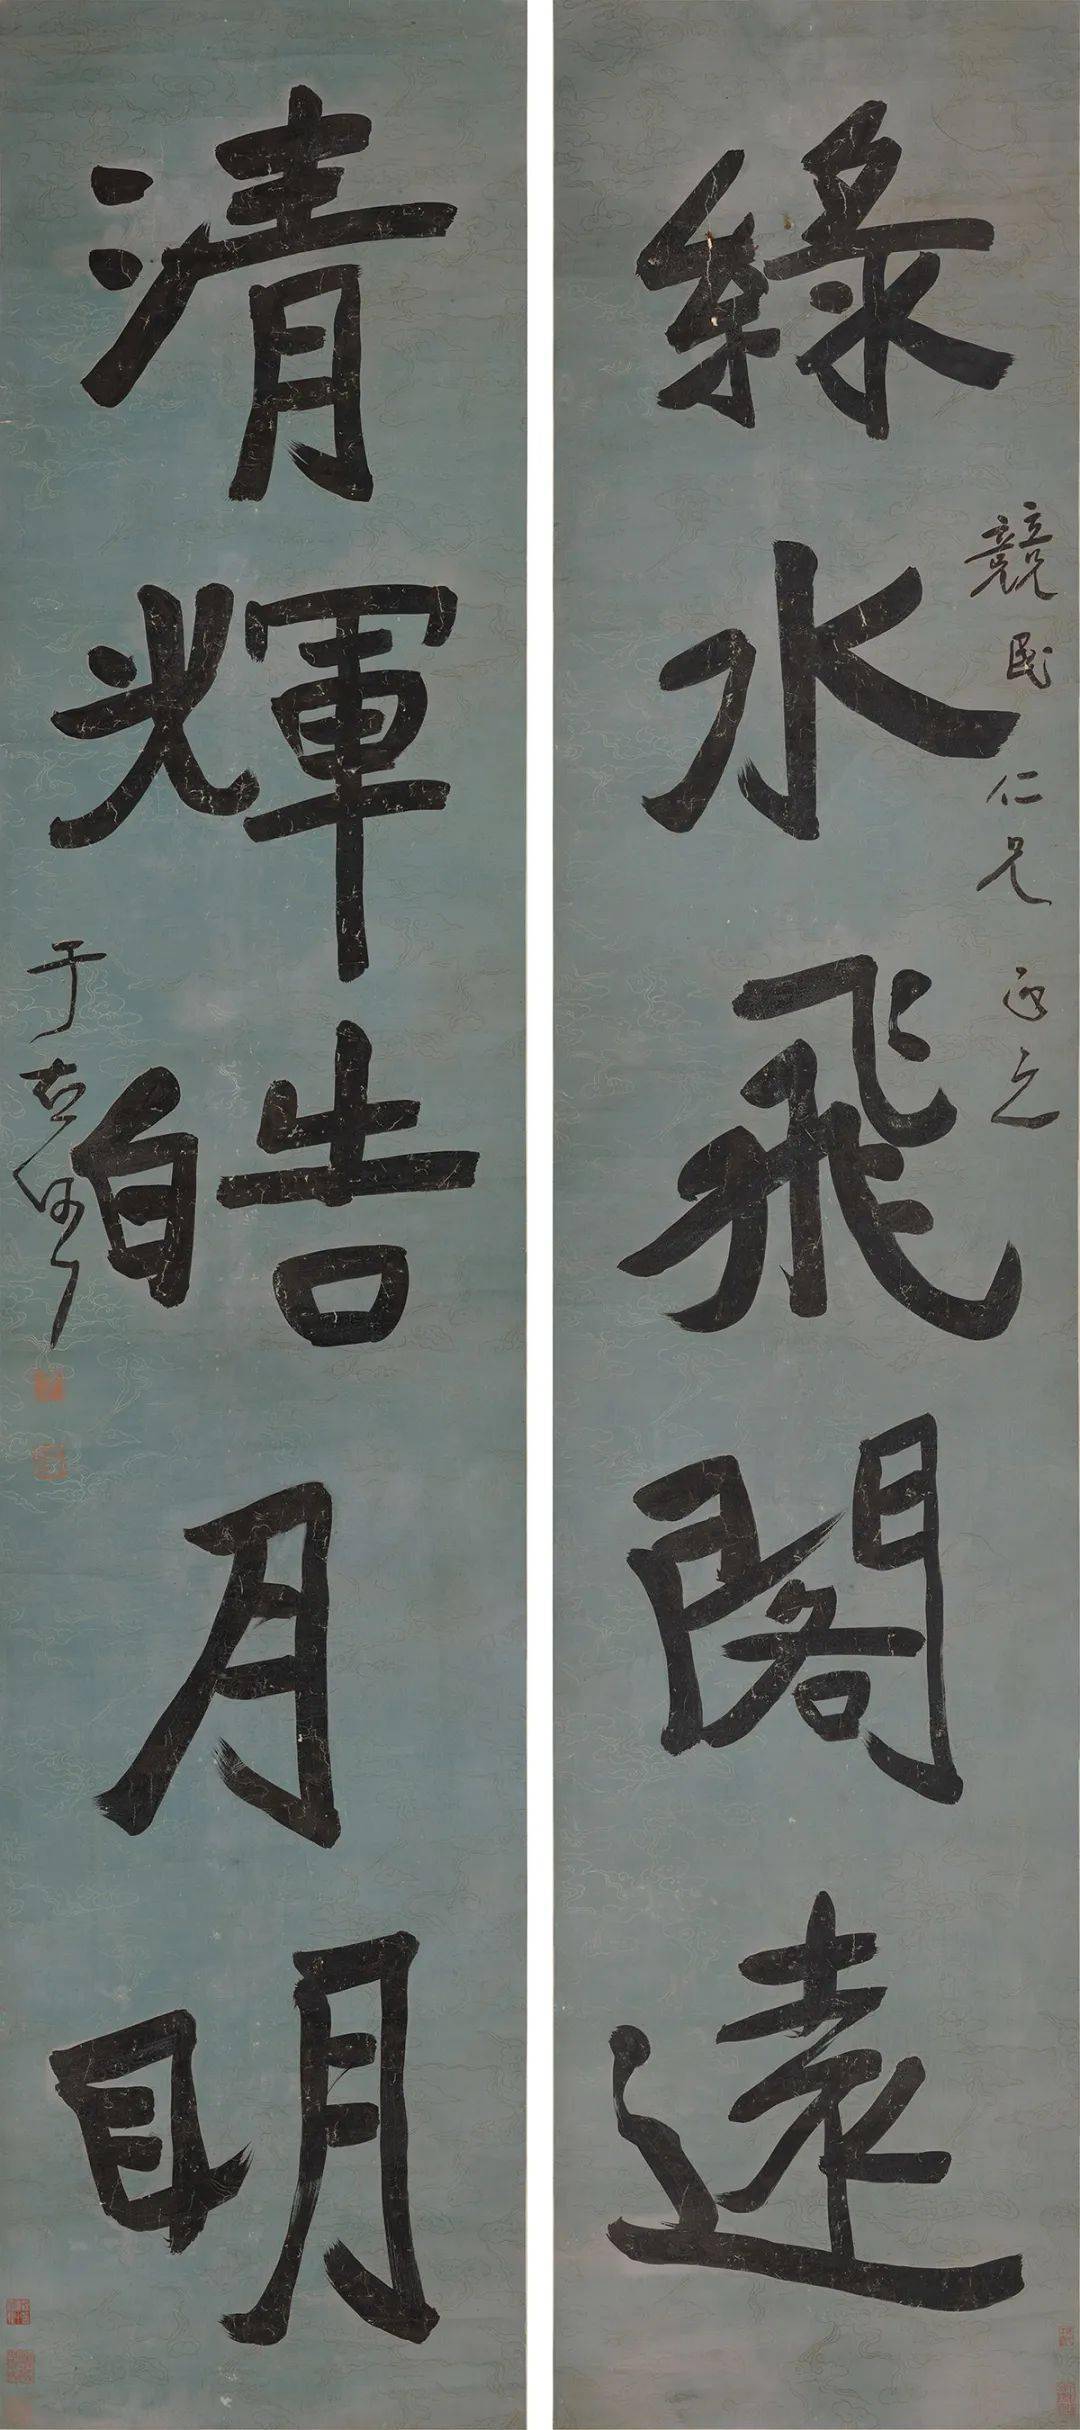 綠水飛閣遠
競民仁兄
之
清輝皓月明
于右